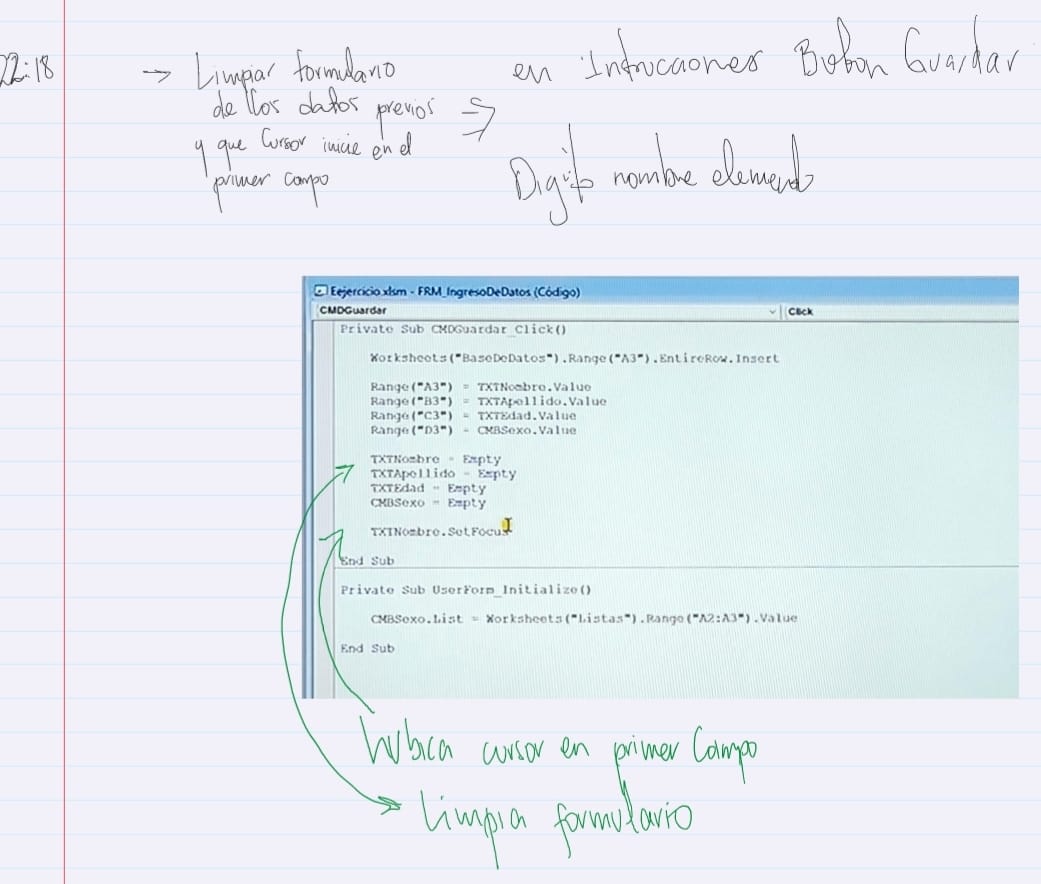 22:18
→ Limpiar formulario
de llos datos previos
y que Cursor inicie en el
primer campo
⇒
en Intrucciones Boton Guardar
Digito nombre elemento
Eejercicio.xlsm - FRM_IngresoDeDatos (Código)
CMDGuardar
Click
Private Sub CMDGuardar_Click()
Worksheets("BaseDeDatos").Range("A3").EntireRow.Insert
Range("A3") = TXTNombre.Value
Range("B3") = TXTApellido.Value
Range("C3") = TXTEdad.Value
Range("D3") = CMBSexo.Value
TXTNombre = Empty
TXTApellido = Empty
TXTEdad = Empty
CMBSexo = Empty
TXTNombre.SetFocus
End Sub
Private Sub UserForm_Initialize()
CMBSexo.List = Worksheets("Listas").Range("A2:A3").Value
End Sub
hubica cursor en primer Campo
Limpia formulario